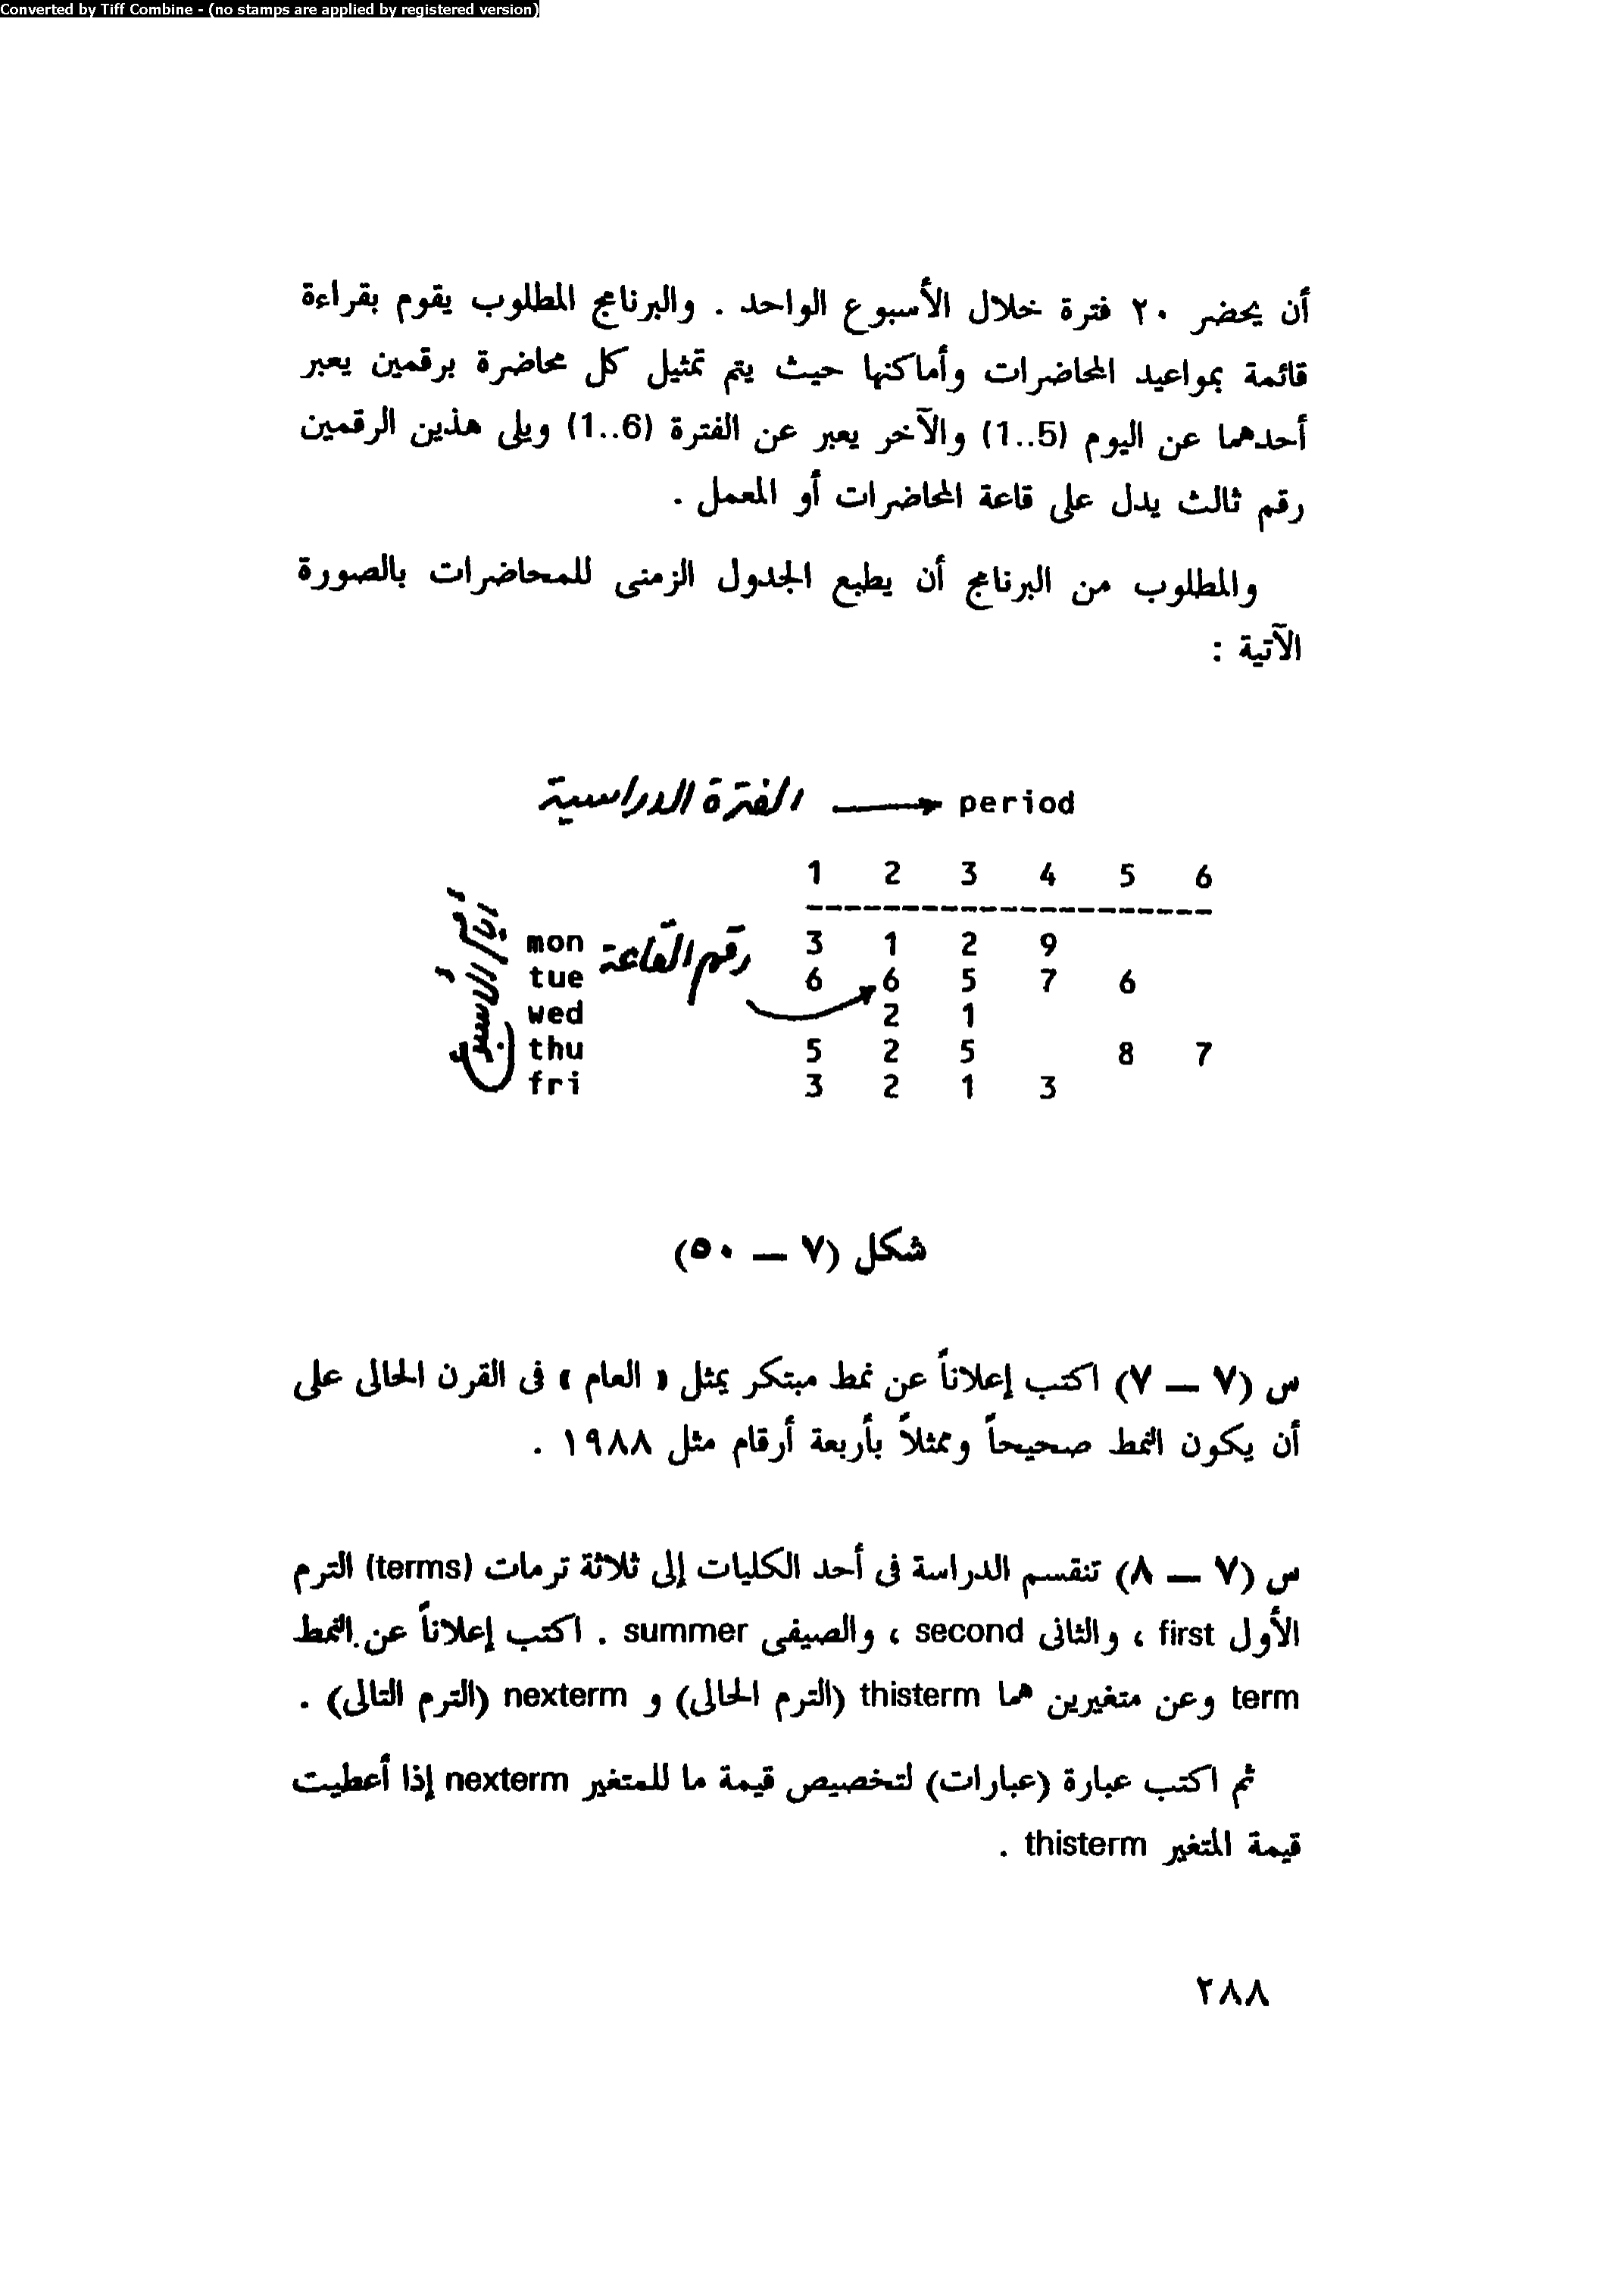 Converted by Tiff Combine - (no stamps are applied by registered version)
أن يحضر ٢٠ فترة خلال الأسبوع الواحد . والبرنامج المطلوب يقوم بقراءة
قائمة بمواعيد المحاضرات وأماكنها حيث يتم تمثيل كل محاضرة برقمين يعبر
أحدهما عن اليوم (1..5) والآخر يعبر عن الفترة (1..6) ويلى هذين الرقمين
رقم ثالث يدل على قاعة المحاضرات أو المعمل .
والمطلوب من البرنامج أن يطبع الجدول الزمنى للمحاضرات بالصورة
الآتية :
الفترة الدراسية period
1 2 3 4 5 6
أيام الأسبوع
رقم القاعة
mon 3 1 2 9
tue 6 6 5 7 6
wed 2 1
thu 5 2 5 8 7
fri 3 2 1 3
شكل (٧ — ٥٠)
س (٧ — ٧) اكتب إعلاناً عن نمط مبتكر يمثل « العام » فى القرن الحالى على
أن يكون النمط صحيحاً وممثلاً بأربعة أرقام مثل ١٩٨٨ .
س (٧ — ٨) تنقسم الدراسة فى أحد الكليات إلى ثلاثة ترمات (terms) الترم
الأول first ، والثانى second ، والصيفى summer . اكتب إعلاناً عن النمط
term وعن متغيرين هما thisterm (الترم الحالى) و nexterm (الترم التالى) .
ثم اكتب عبارة (عبارات) لتخصيص قيمة ما للمتغير nexterm إذا أعطيت
قيمة المتغير thisterm .
٢٨٨